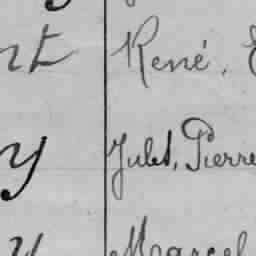 nt René, E
y Jules, Pierre
y Marcel